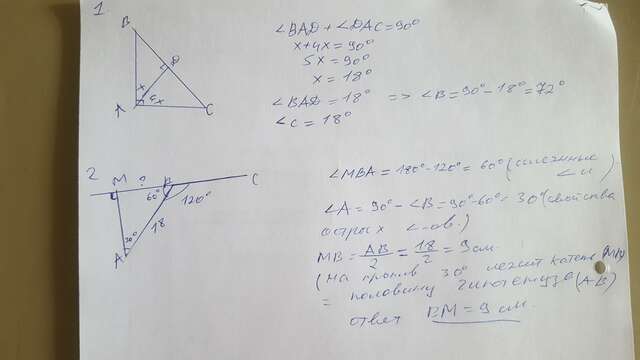 1.
B
D
x
4x
A
C
∠BAD + ∠DAC = 90°
x+4x = 90°
5x = 90°
x = 18°
∠BAD = 18° => ∠B = 90° - 18° = 72°
∠C = 18°
2
M ? B C
60° 120°
18
30°
A
∠MBA = 180° - 120° = 60° (смежные
∠и)
∠A = 90° - ∠B = 90° - 60° = 30° (свойства
острых ∠-ов.)
MB = AB/2 = 18/2 = 9 см.
(на против 30° лежит катет (MB)
= половину гипотенузе (AB)
ответ BM = 9 см.